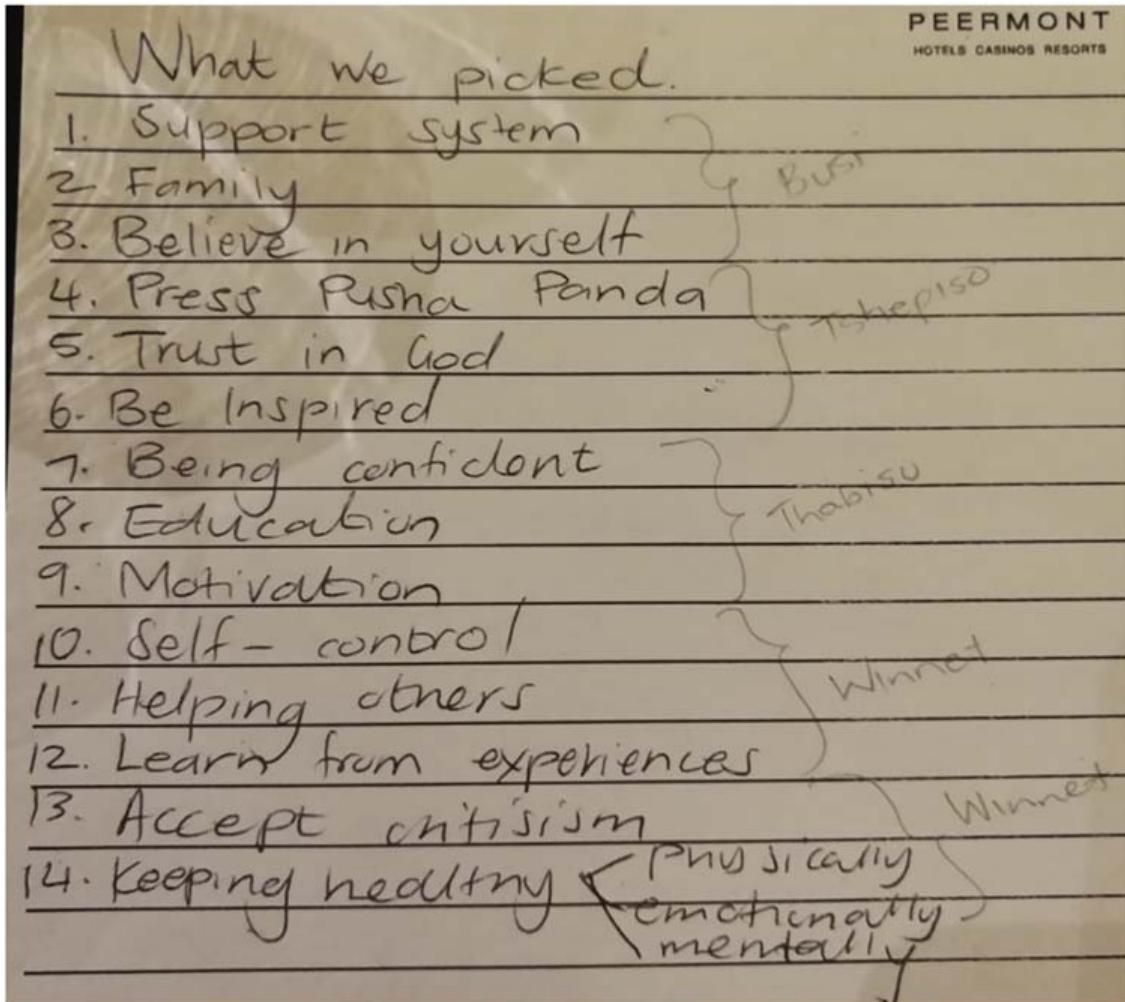 PEERMONT
HOTELS CASINOS RESORTS
What we picked.
1. Support system
2 Family
3. Believe in yourself
Busi
4. Press Pusha Panda
5. Trust in God
6. Be Inspired
Tshepiso
7. Being confident
8. Education
9. Motivation
Thabiso
10. Self-control
11. Helping others
12. Learn from experiences
Winnet
13. Accept critisism
14. Keeping healthy
Physically
emotionally
mentally
Winnet